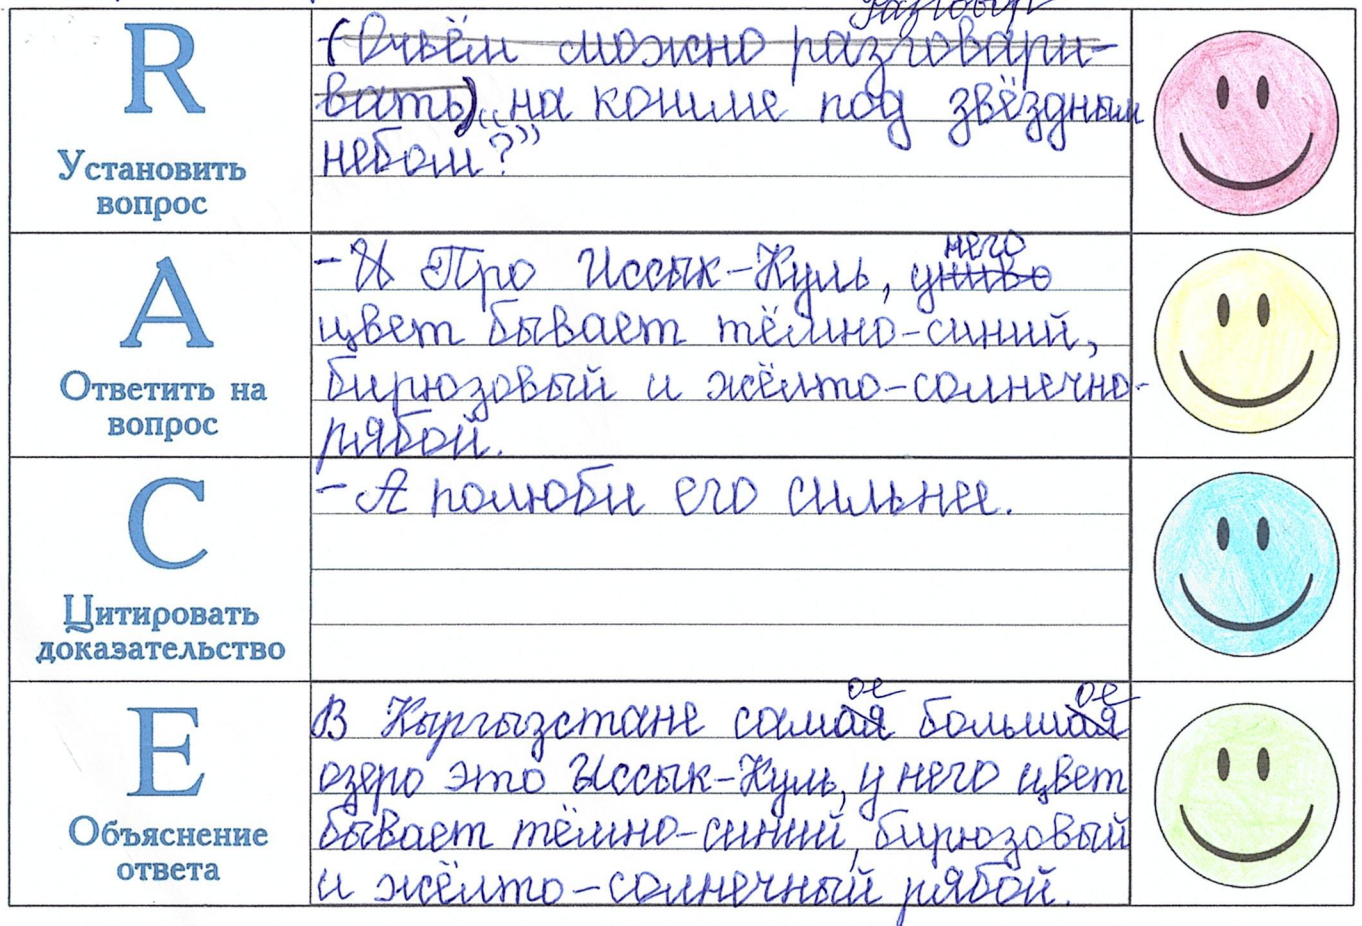 Разговор
R
Установить
вопрос
- (Очьём можно разговари-
вать) „на кошме под звёздным
небом?”
A
Ответить на
вопрос
- И Про Иссык-Куль, униво него
цвет бывает тёмно-синий,
бирюзовый и жёлто-солнечно-
рябой.
C
Цитировать
доказательство
- А полюби его сильнее.
E
Объяснение
ответа
В Кыргызстане самая ое большая ое
озеро это Ыссык-Куль, у него цвет
бывает тёмно-синий, бирюзовый
и жёлто-солнечный рябой.